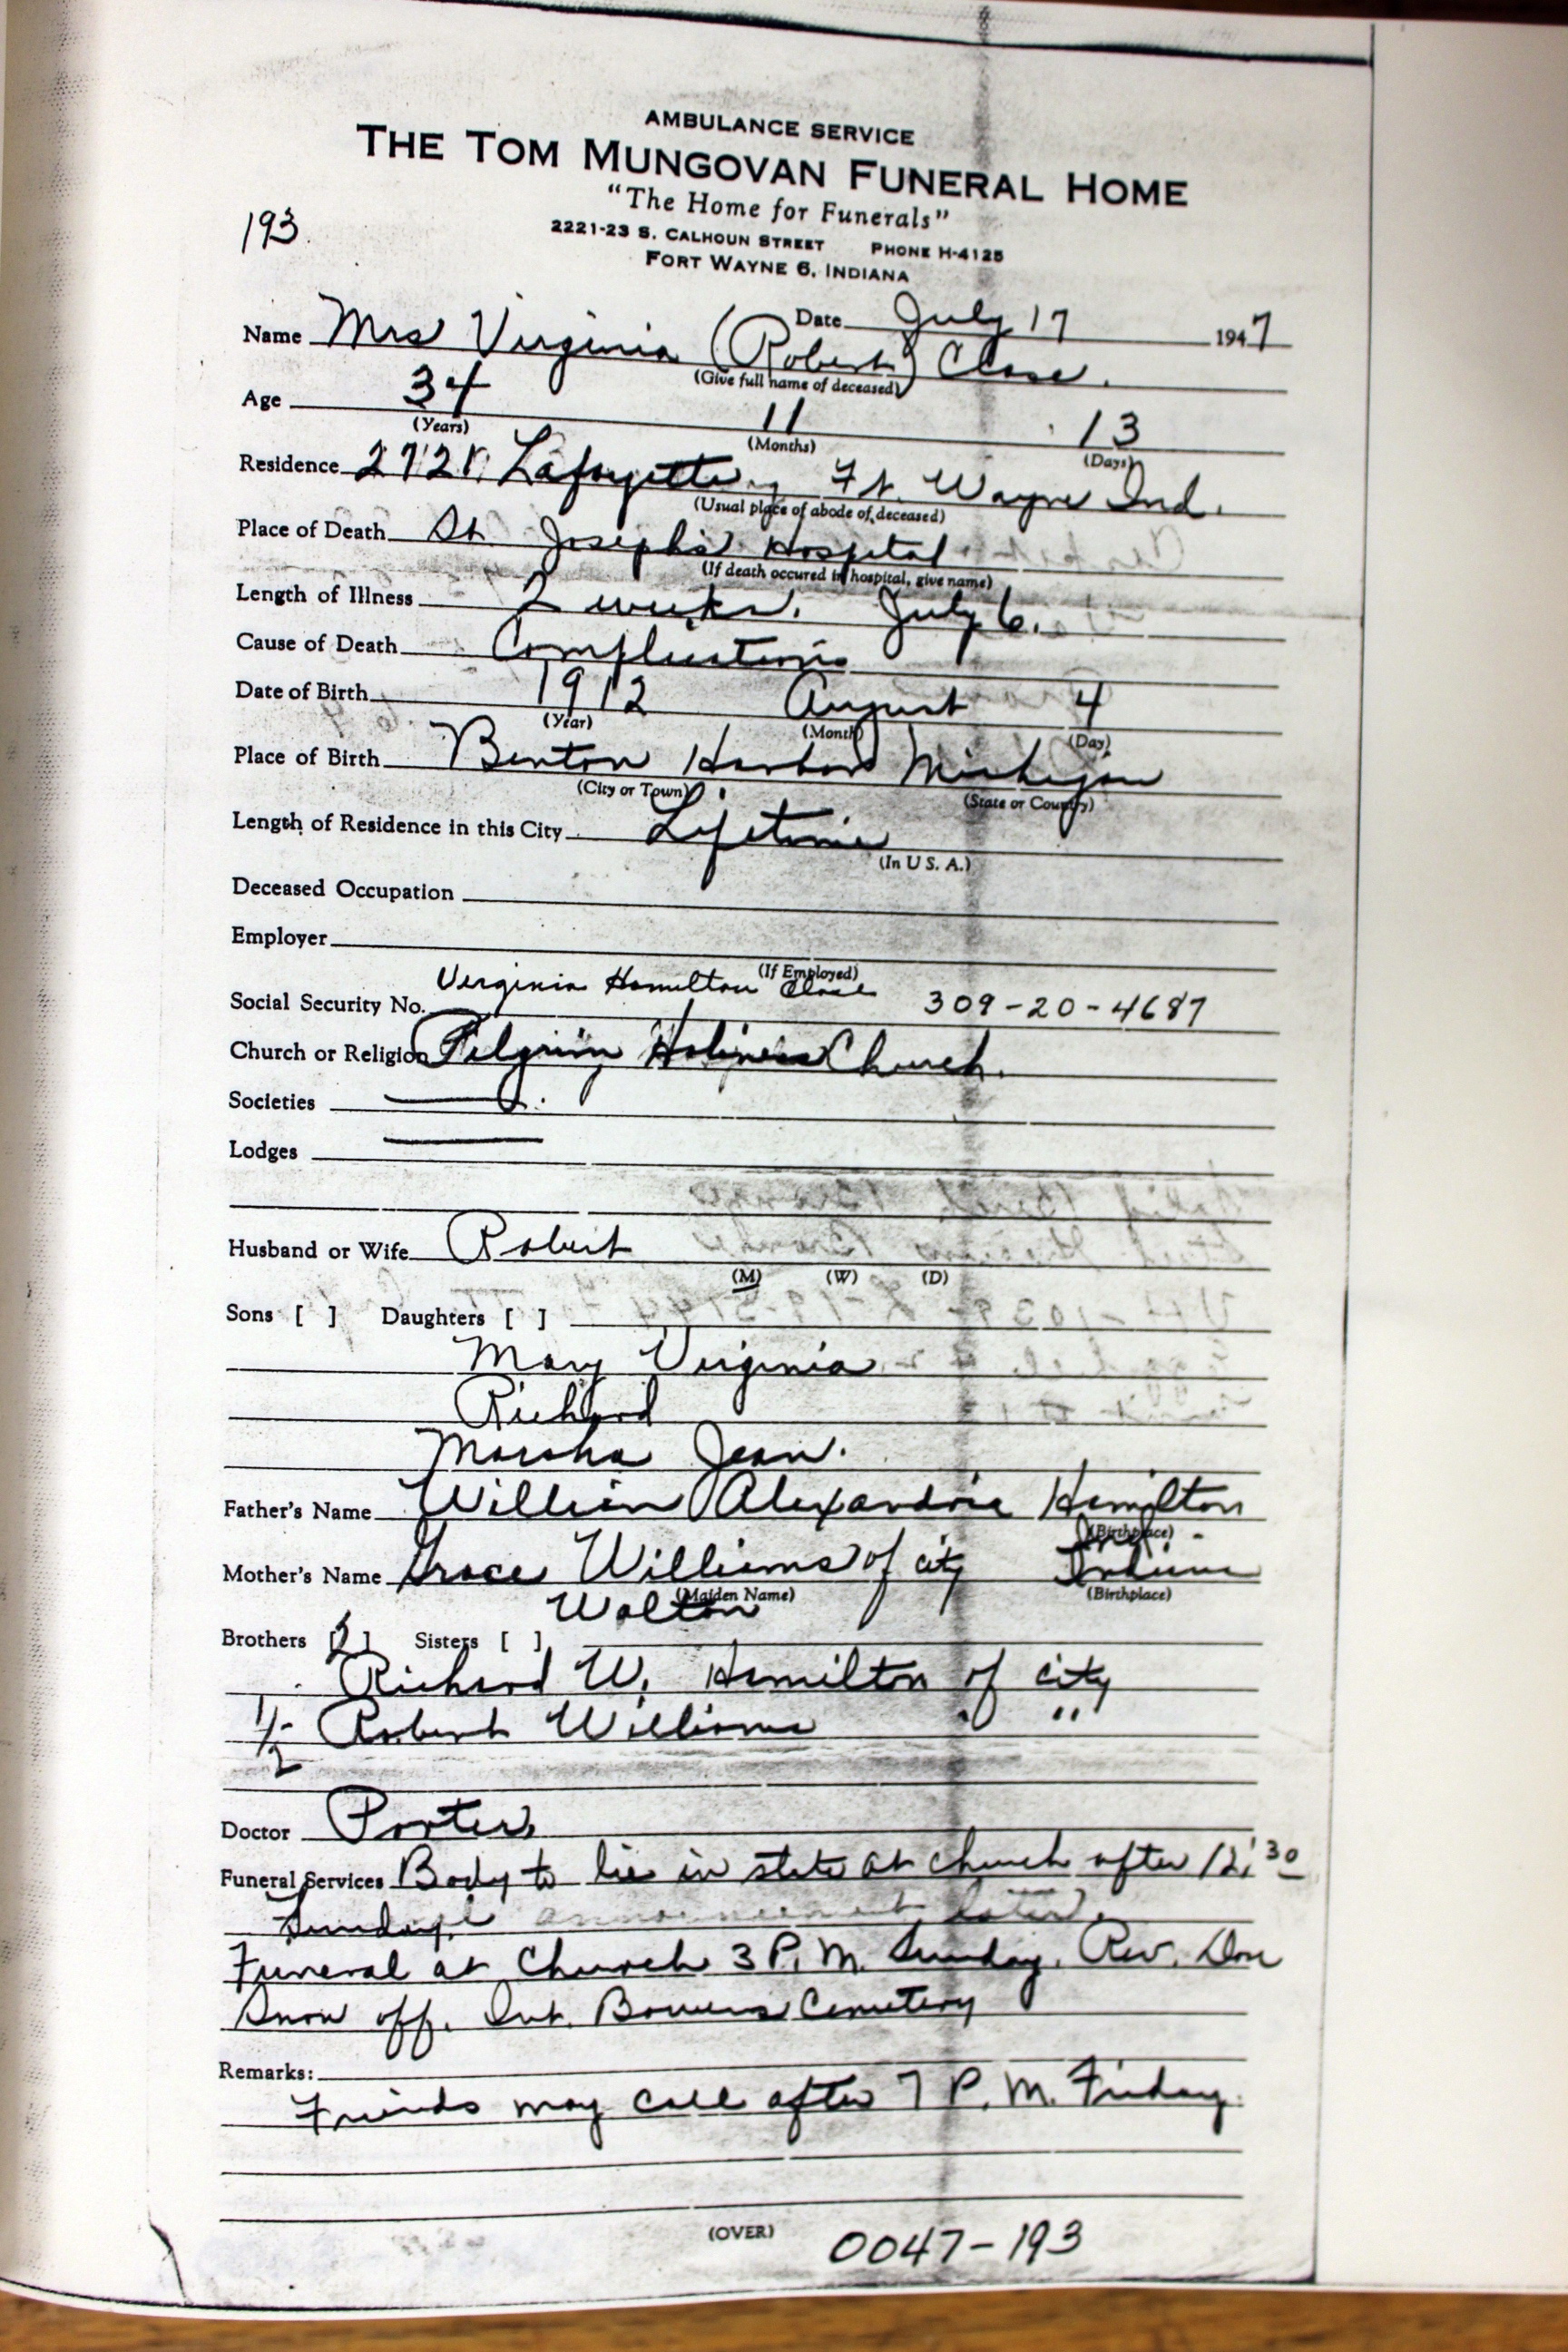 AMBULANCE SERVICE
THE TOM MUNGOVAN FUNERAL HOME
"The Home for Funerals"
193.
2221-23 S. CALHOUN STREET PHONE H-4125
FORT WAYNE 6, INDIANA
Date July 17 1947
Name Mrs Virginia (Robert) Close.
(Give full name of deceased)
Age 34 11 13
(Years) (Months) (Days)
Residence Lafayette, Ft. Wayne Ind.
(Usual place of abode of deceased)
Place of Death St. Joseph's Hospital
(If death occured in hospital, give name)
Length of Illness 2 weeks. July 6.
Cause of Death Complications
Date of Birth 1912 August 4
(Year) (Month) (Day)
Place of Birth Benton Harbor Michigan
(City or Town) (State or Country)
Length of Residence in this City Lifetime
(In U S. A.)
Deceased Occupation
Employer
(If Employed)
Virginia Hamilton Close
Social Security No. 309-20-4687
Church or Religion Pilgrim Holiness Church.
Societies
Lodges
Husband or Wife Robert
(M) (W) (D)
Sons [ ] Daughters [ ]
Mary Virginia
Richard
Marsha Jean.
Father's Name William Alexandria Hamilton
(Birthplace)
Ind.
Mother's Name Grace Williams of city Indiana
(Maiden Name) (Birthplace)
Walton
Brothers [2] Sisters [ ]
Richard W. Hamilton of city
1/2 Robert Williams " "
Doctor Porter
Funeral Services Body to lie in state at church after 12:30
Sunday. announcement later.
Funeral at Church 3 P.M. Sunday. Rev. Don
Snow off. Int. Bowers Cemetery
Remarks:
Friends may call after 7 P.M. Friday.
(OVER) 0047-193